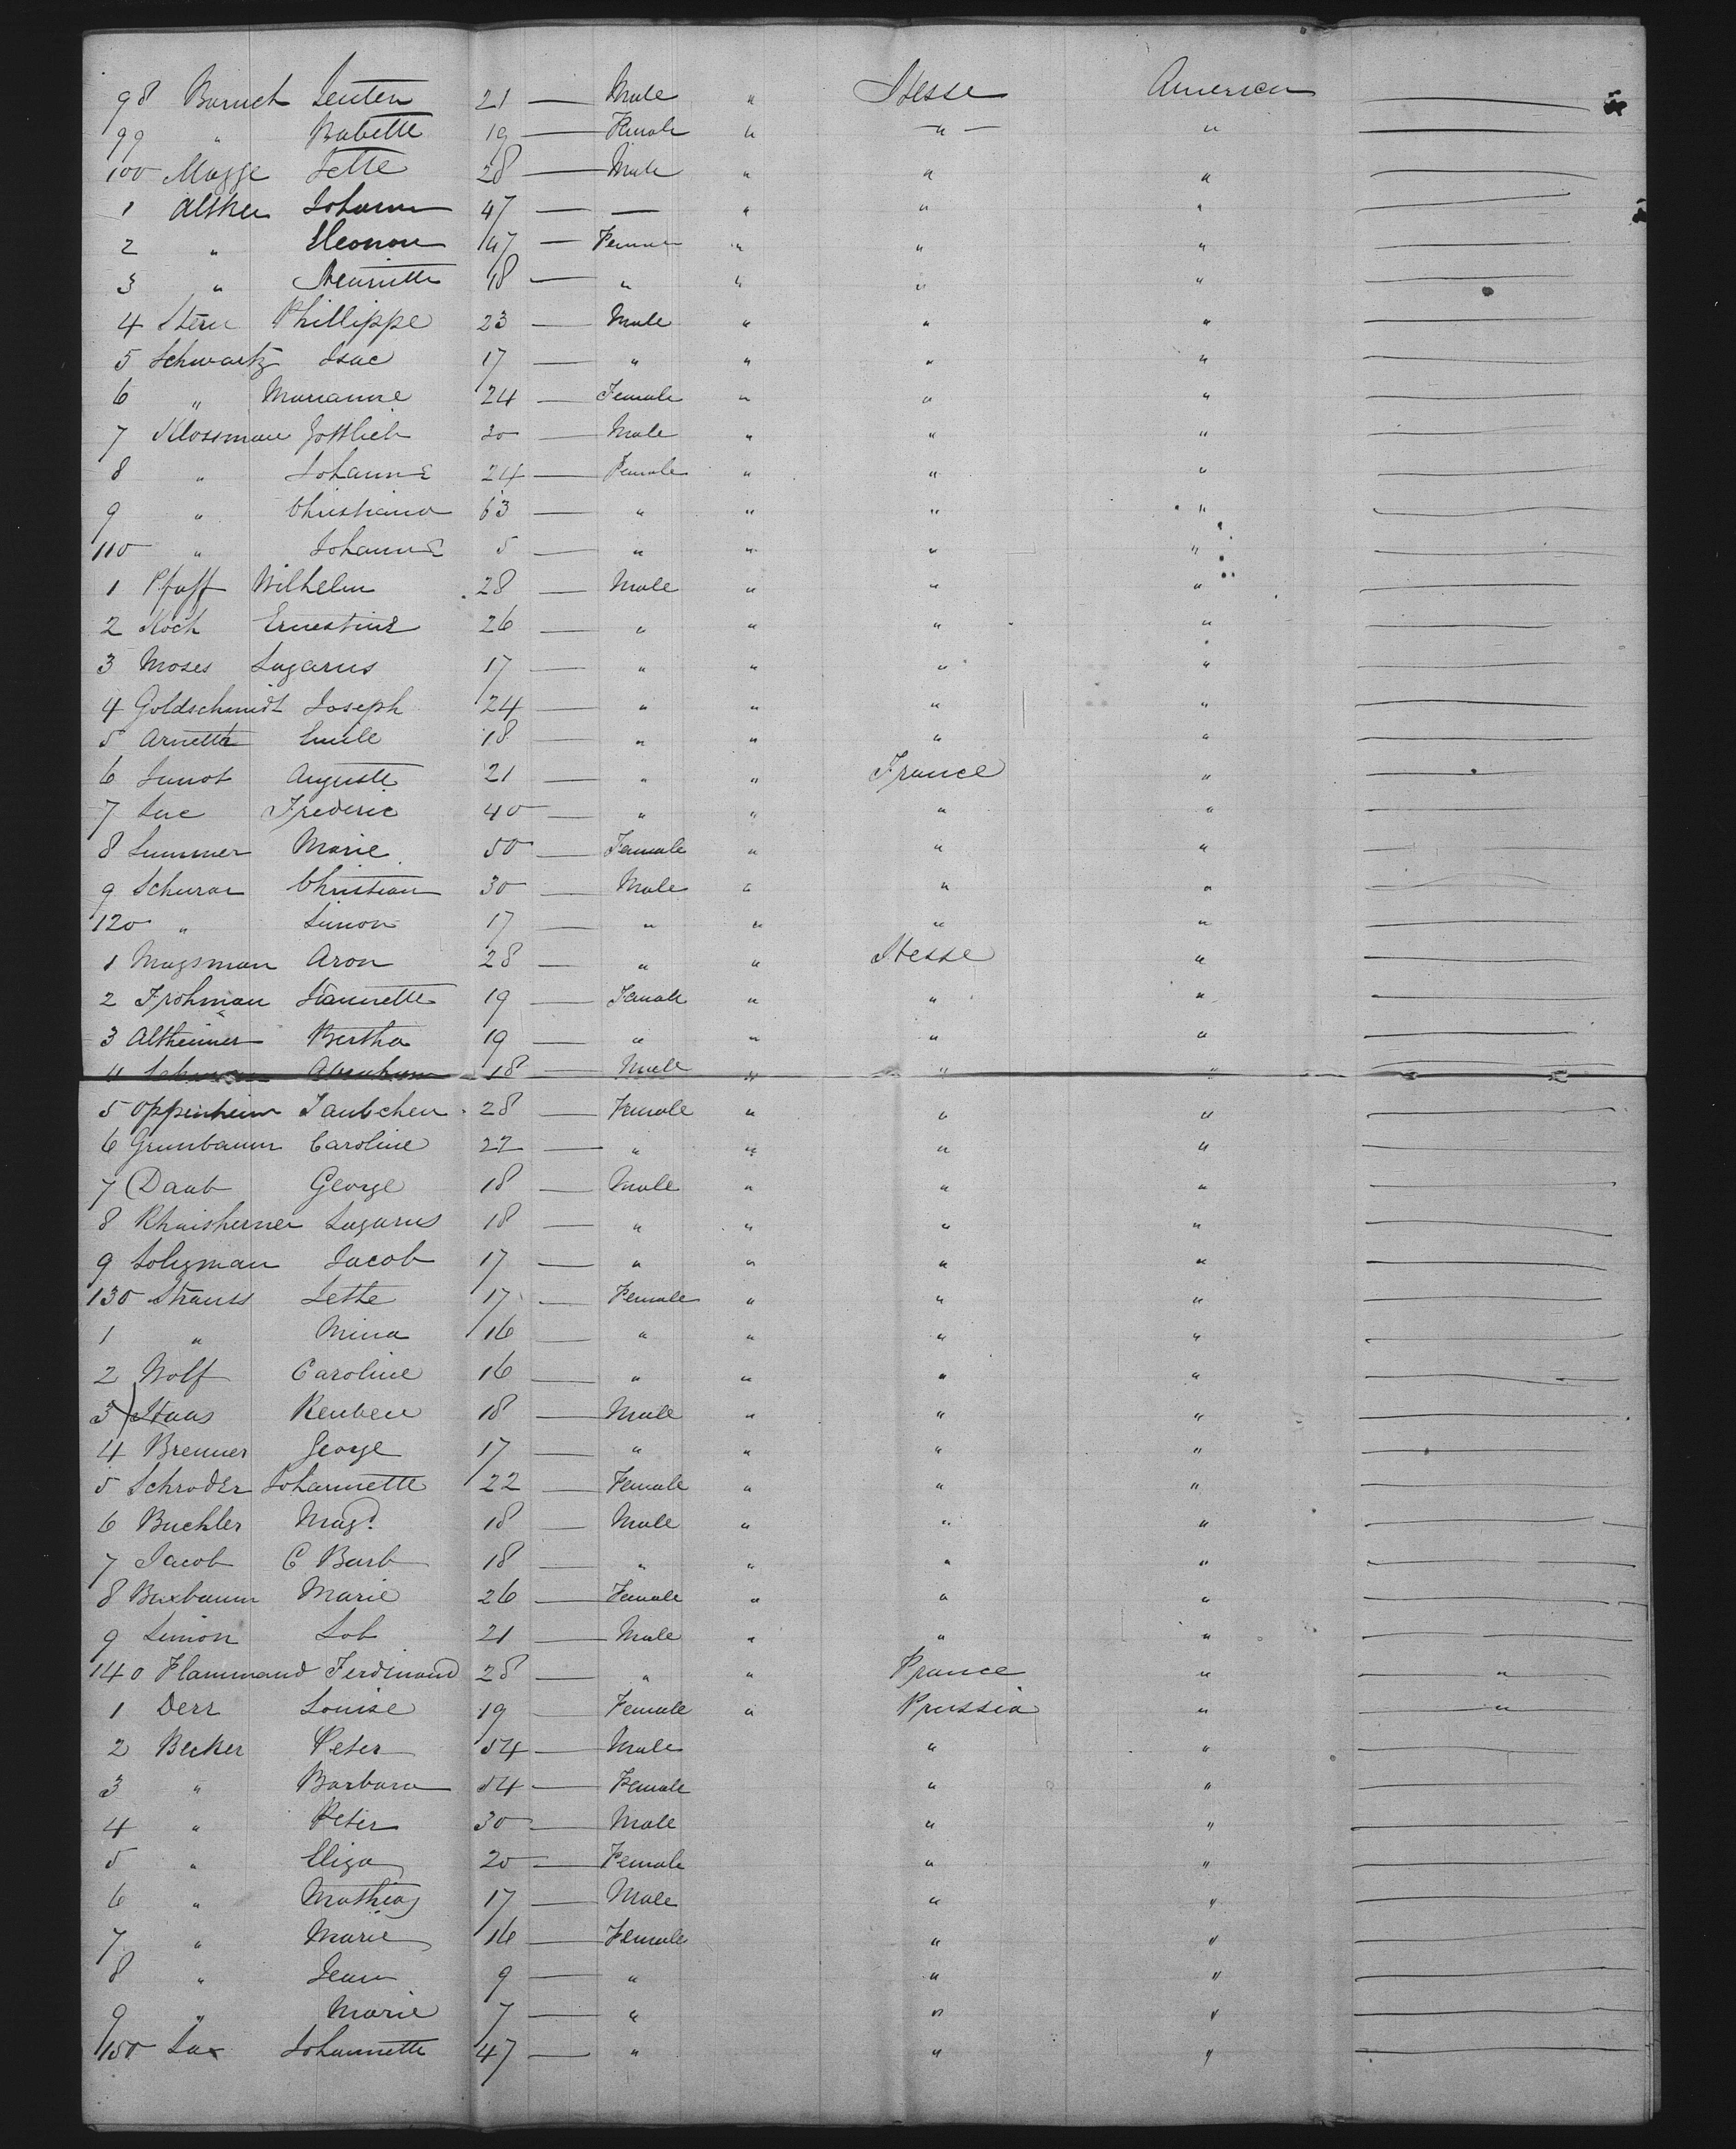 98 Baruch Senten 21 — Male " Hesse America
99 " Babette 19 — Female " " "
100 Magge Jette 28 — Male " " "
1 Altker Johann 47 — — " " "
2 " Eleonore 47 — Female " " "
3 " Henriette 18 — " " " "
4 Stern Phillippe 23 — Male " " "
5 Schwartz Isac 17 — " " " "
6 " Marianne 24 — Female " " "
7 Klossman Gottlieb 30 — Male " " "
8 " Johanne 24 — Female " " "
9 " Christiana 63 — " " " "
110 " Johanne 5 — " " " "
1 Pfaff Wilhelm 28 — Male " " "
2 Koch Ernestine 26 — " " " "
3 Moses Lazarus 17 — " " " "
4 Goldschmidt Joseph 24 — " " " "
5 Arnette Emile 18 — " " " "
6 Junot Auguste 21 — " " France "
7 Luc Frederic 40 — " " " "
8 Summer Marie 50 — Female " " "
9 Schurar Christian 30 — Male " " "
120 " Simon 17 — " " " "
1 Magsman Aron 28 — " " Hesse "
2 Frohman Jeannette 19 — Female " " "
3 Altheimer Bertha 19 — " " " "
4 Abraham 18 — Male " " "
5 Oppenheim Taubchen 28 — Female " " "
6 Grunbaum Caroline 22 — " " " "
7 Daub George 18 — Male " " "
8 Rhaisherner Lazarus 18 — " " " "
9 Solgman Jacob 17 — " " " "
130 Strauss Jette 17 — Female " " "
1 " Mina 16 — " " " "
2 Wolf Caroline 16 — " " " "
3 Haas Reuben 18 — Male " " "
4 Brenner George 17 — " " " "
5 Schroder Johannette 22 — Female " " "
6 Buchler Magd. 18 — Male " " "
7 Jacob C Barb 18 — " " " "
8 Buxbaum Marie 26 — Female " " "
9 Simon Lob 21 — Male " " "
140 Flammand Ferdinand 28 — " " France " "
1 Derr Louise 19 Female " Prussia " "
2 Becker Peter 54 — Male " "
3 " Barbara 54 — Female " "
4 " Peter 30 — Male " "
5 " Eliza 20 — Female " "
6 " Mathias 17 — Male " "
7 " Marie 16 — Female " "
8 " Jean 9 — " " "
9 " Marie 7 — " " "
150 Lax Johannette 47 — " " "